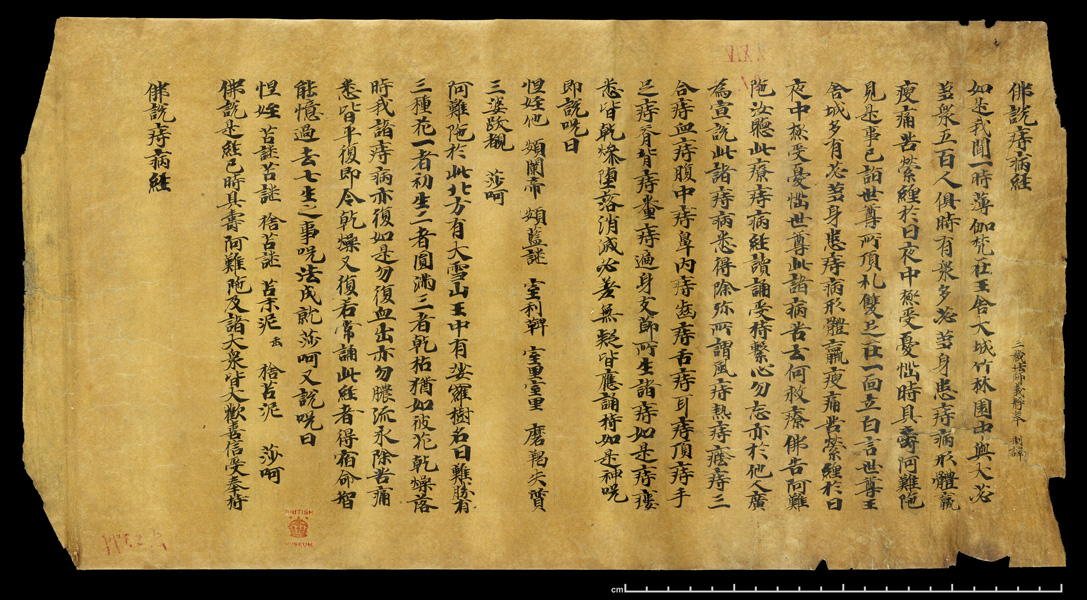 佛說痔病經
三藏法師義淨奉 制譯
如是我聞一時薄伽梵在王舍大城竹林園中與大苾
芻衆五百人俱時有衆多苾芻身患痔病形體羸
瘦痛苦縈纏於日夜中極受憂惱時具壽阿難陁
見是事已詣世尊所頂礼雙足在一面立白言世尊王
舍城多有苾芻身患痔病形體羸瘦痛苦縈纏於日
夜中極受憂惱世尊此諸病苦云何救療佛告阿難
陁汝聽此療痔病經讀誦受持繫心勿忘亦於他人廣
為宣說此諸痔病悉得除弥所謂風痔熱痔癊痔三
合痔血痔腹中痔鼻內痔齒痔舌痔耳痔頂痔手
足痔脊背痔糞痔遍身支節所生諸痔如是痔瘻
悉皆乾燥墮落消滅必差無疑皆應誦持如是神呪
即說呪曰
怛姪他 頞闌帝 頞藍謎 室利鞞 室里室里 磨羯失質
三婆跋覩 莎呵
阿難陁於此北方有大雪山王中有娑羅樹名曰難勝有
三種花一者初生二者圓滿三者乾枯猶如彼花乾燥落
時我諸痔病亦復如是勿復血出亦勿膿流永除苦痛
悉皆平復即令乾燥又復若常誦此經者得宿命智
能憶過去七生之事呪法成就莎呵又說呪曰
怛姪 苫謎苫謎 捨苫謎 苫末泥 去 捨苫泥 莎呵
佛說是經已時具壽阿難陁及諸大衆皆大歡喜信受奉持
佛說痔病經
BRITISH
MUSEUM
cm